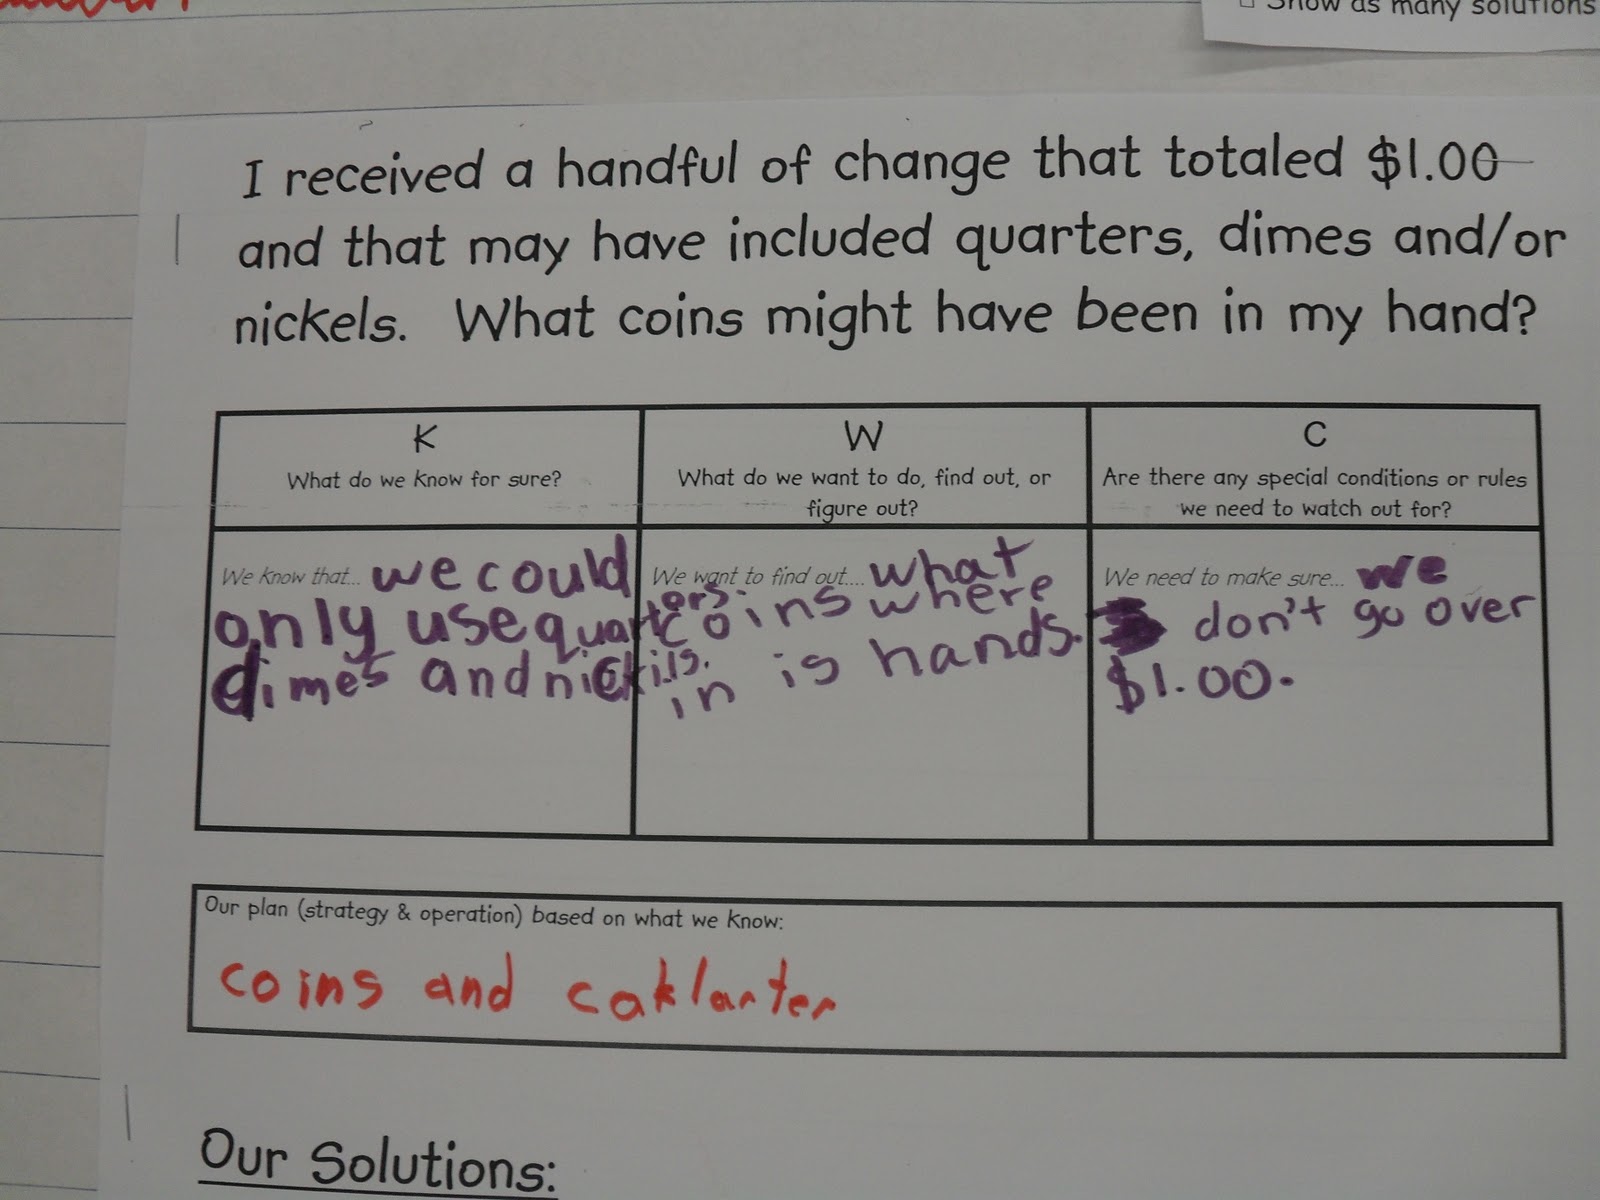 □ Show as many solutions
I received a handful of change that totaled $1.00
and that may have included quarters, dimes and/or
nickels. What coins might have been in my hand?
K
What do we know for sure?
We know that... we could
only use quarters.
dimes and nickils.
W
What do we want to do, find out, or
figure out?
We want to find out.... what
coins where
in is hands.
C
Are there any special conditions or rules
we need to watch out for?
We need to make sure... we
don't go over
$1.00.
Our plan (strategy & operation) based on what we know:
coins and caklarter
Our Solutions: